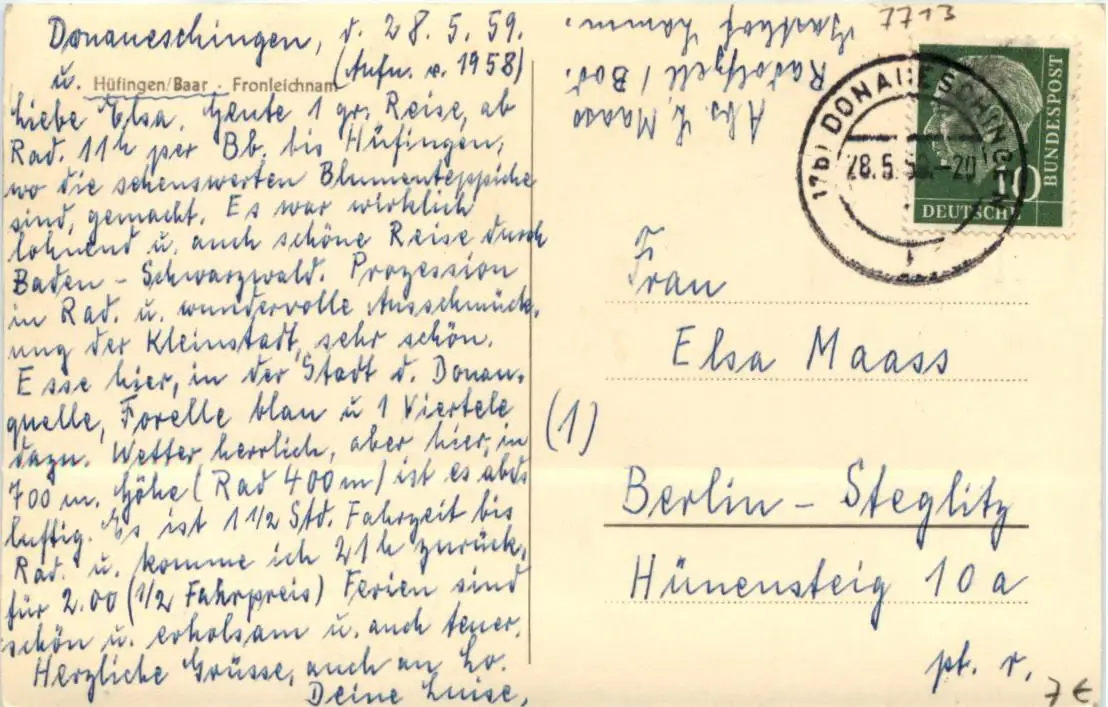 Donaueschingen, d. 28.5.59.
u. Hüfingen/Baar . Fronleichnam (Aufn. v. 1958)
Liebe Elsa, Heute 1 gr. Reise, ab
Rad. 11h per Bb. bis Hüfingen,
wo die sehenswerten Blumenteppiche
sind, gemacht. Es war wirklich
lohnend u. auch schöne Reise durch
Baden - Schwarzwald. Prozession
in Rad. u. wundervolle Ausschmück-
ung der Kleinstadt, sehr schön.
Esse hier, in der Stadt d. Donau-
quelle, Forelle blau u 1 Viertele
dazu. Wetter herrlich, aber hier, in
700 m. Höhe (Rad 400 m) ist es abds
luftig. Es ist 1 1/2 Std. Fahrzeit bis
Rad. u. komme ich 21h zurück,
für 2.00 (1/2 Fahrpreis) Ferien sind
schön u. erholsam u. auch teuer.
Herzliche Grüsse, auch an Lo.
Deine Luise,
Abs. L. Maass
Radolfzell / Bod.
Gasthof Lamm.
7713
(17b) DONAUESCHINGEN
28.5.59.-20
10
DEUTSCHE
BUNDESPOST
Frau
Elsa Maass
(1)
Berlin - Steglitz
Hünensteig 10a
pt. r.
7 €